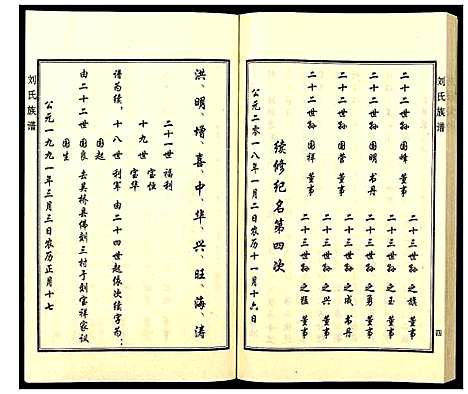 刘氏族谱
四
二十二世孙 国峰 董事
二十二世孙 国明 书丹
二十二世孙 国营 董事
二十二世孙 国祥 董事
二十三世孙 之旗 董事
二十三世孙 之玉 董事
二十三世孙 之勇 董事
二十三世孙 之成 书丹
二十三世孙 之兴 董事
二十三世孙 之强 董事
续修纪名第四次
公元二零一八年一月二日农历十一月十六日
洪、明、增、喜、中、华、兴、旺、海、涛
二十一世 福利
谱为续，十八世 利军 由二十四世起依次续字为：
十九世 宝恒
宝华
国起
由二十二世 国良 去吴桥县佛刘三村于刘宝祥家议
国生
公元一九九一年三月三日农历正月十七
刘氏族谱